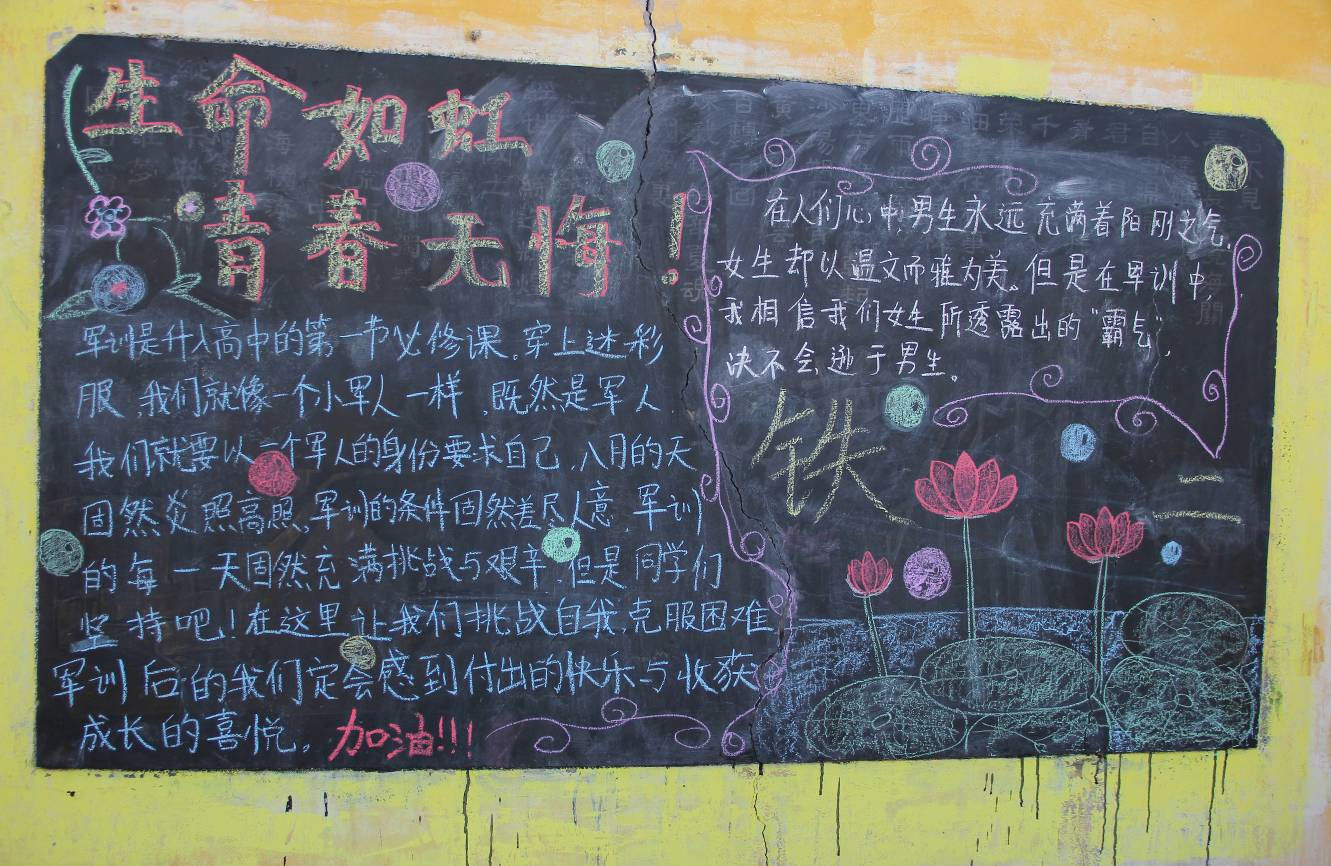 生命如虹
青春无悔！
军训是升入高中的第一节必修课。穿上迷彩
服，我们就像一个小军人一样，既然是军人
我们就要以一个军人的身份要求自己，八月的天
固然炎照高照，军训的条件固然差尽人意，军训
的每一天固然充满挑战与艰辛，但是同学们
坚持吧！在这里让我们挑战自我，克服困难
军训后的我们定会感到付出的快乐与收获
成长的喜悦。加油!!!
在人们心中，男生永远充满着阳刚之气，
女生却以温文而雅为美。但是在军训中，
我相信我们女生所透露出的“霸气”，
决不会逊于男生。
铁
二